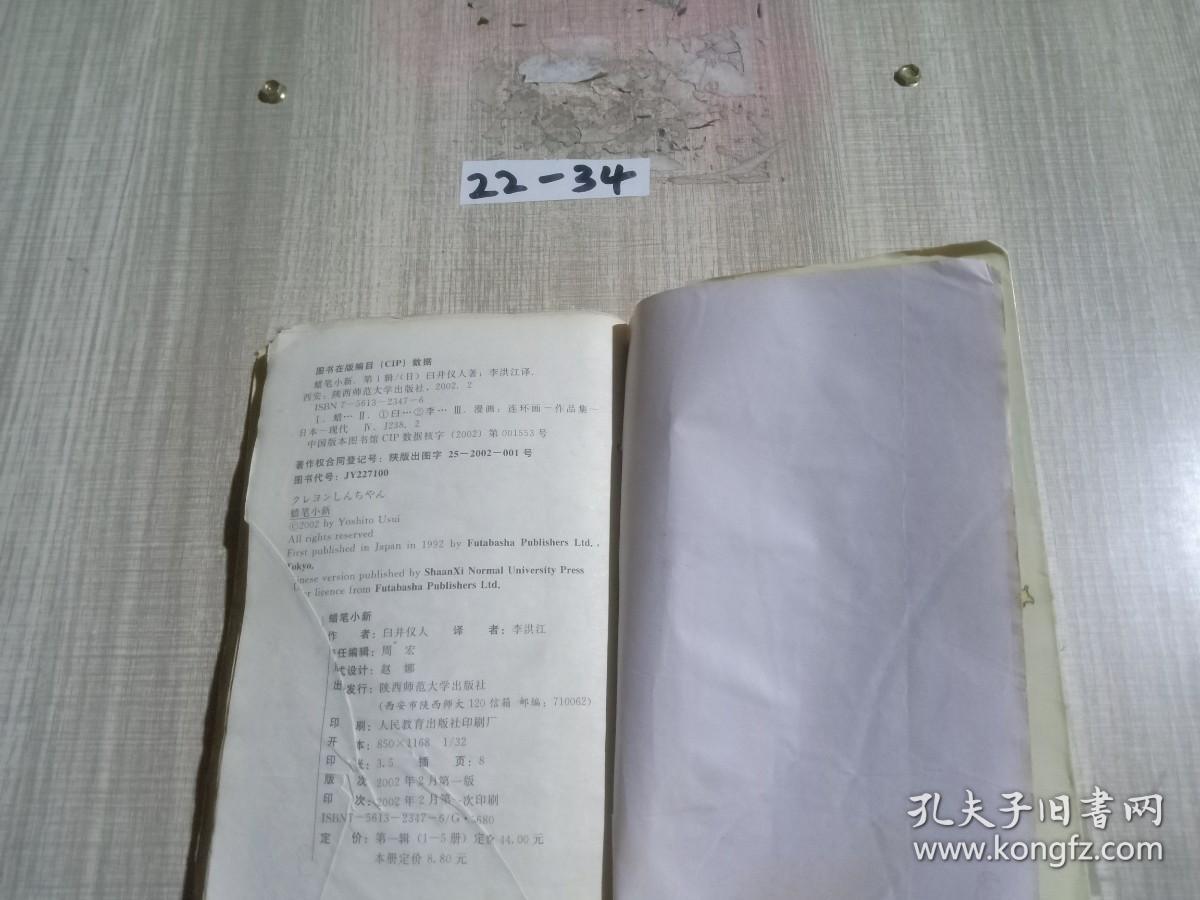 22-34
图书在版编目(CIP)数据
蜡笔小新.第1辑/(日)臼井仪人著;李洪江译.
西安:陕西师范大学出版社,2002.2
ISBN 7-5613-2347-6
Ⅰ.蜡… Ⅱ.①臼…②李… Ⅲ.漫画:连环画-作品集-
日本-现代 Ⅳ.J238.2
中国版本图书馆CIP数据核字(2002)第001553号
著作权合同登记号:陕版出图字 25-2002-001号
图书代号:JY227100
クレヨンしんちやん
蜡笔小新
©2002 by Yoshito Usui
All rights reserved
First published in Japan in 1992 by Futabasha Publishers Ltd.,
Tokyo.
inese version published by ShaanXi Normal University Press
er licence from Futabasha Publishers Ltd.
蜡笔小新
作 者:臼井仪人 译 者:李洪江
任编辑:周 宏
设计:赵 娜
出 发行:陕西师范大学出版社
(西安市陕西师大120信箱 邮编:710062)
印 刷:人民教育出版社印刷厂
开 本:850×1168 1/32
印 张:3.5 插 页:8
版 次 2002年2月第一版
印 次:2002年2月第一次印刷
ISBN7-5613-2347-6/G·1680
定 价:第一辑(1-5册)定价44.00元
本册定价8.80元
孔夫子旧书网
www.kongfz.com